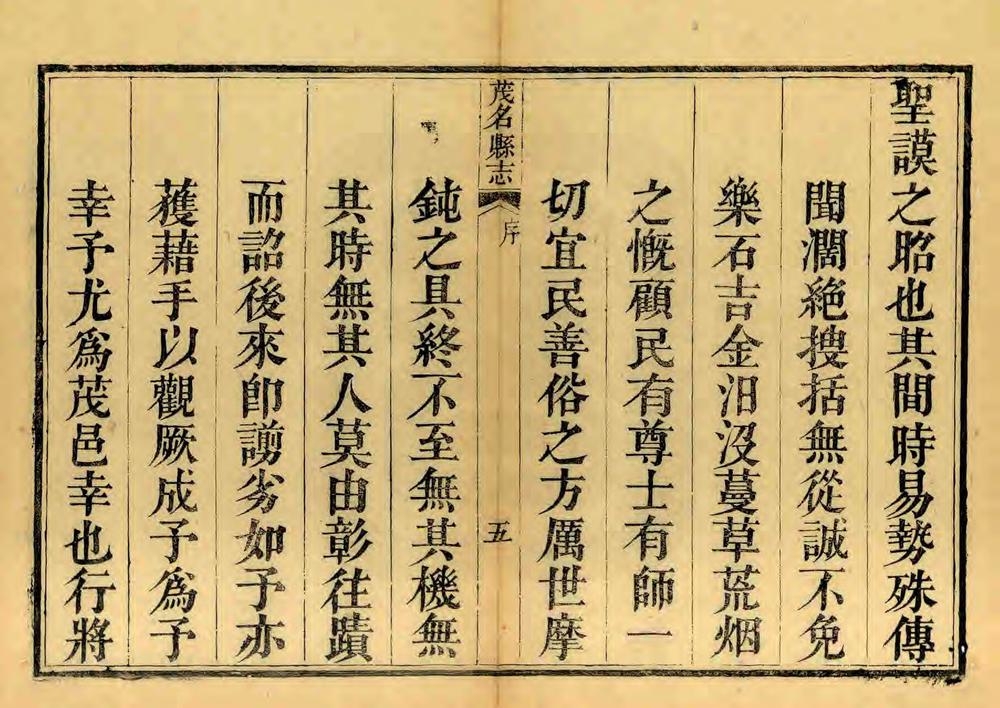 聖謨之昭也其間時易勢殊傳
聞濶絶搜括無從誠不免
樂石吉金汨没蔓草荒烟
之慨顧民有尊士有師一
切宜民善俗之方厲世摩
茂名縣志
序
五
鈍之具終不至無其機無
其時無其人莫由彰往蹟
而詔後來卽謭劣如予亦
獲藉手以觀厥成予爲予
幸予尤爲茂邑幸也行將